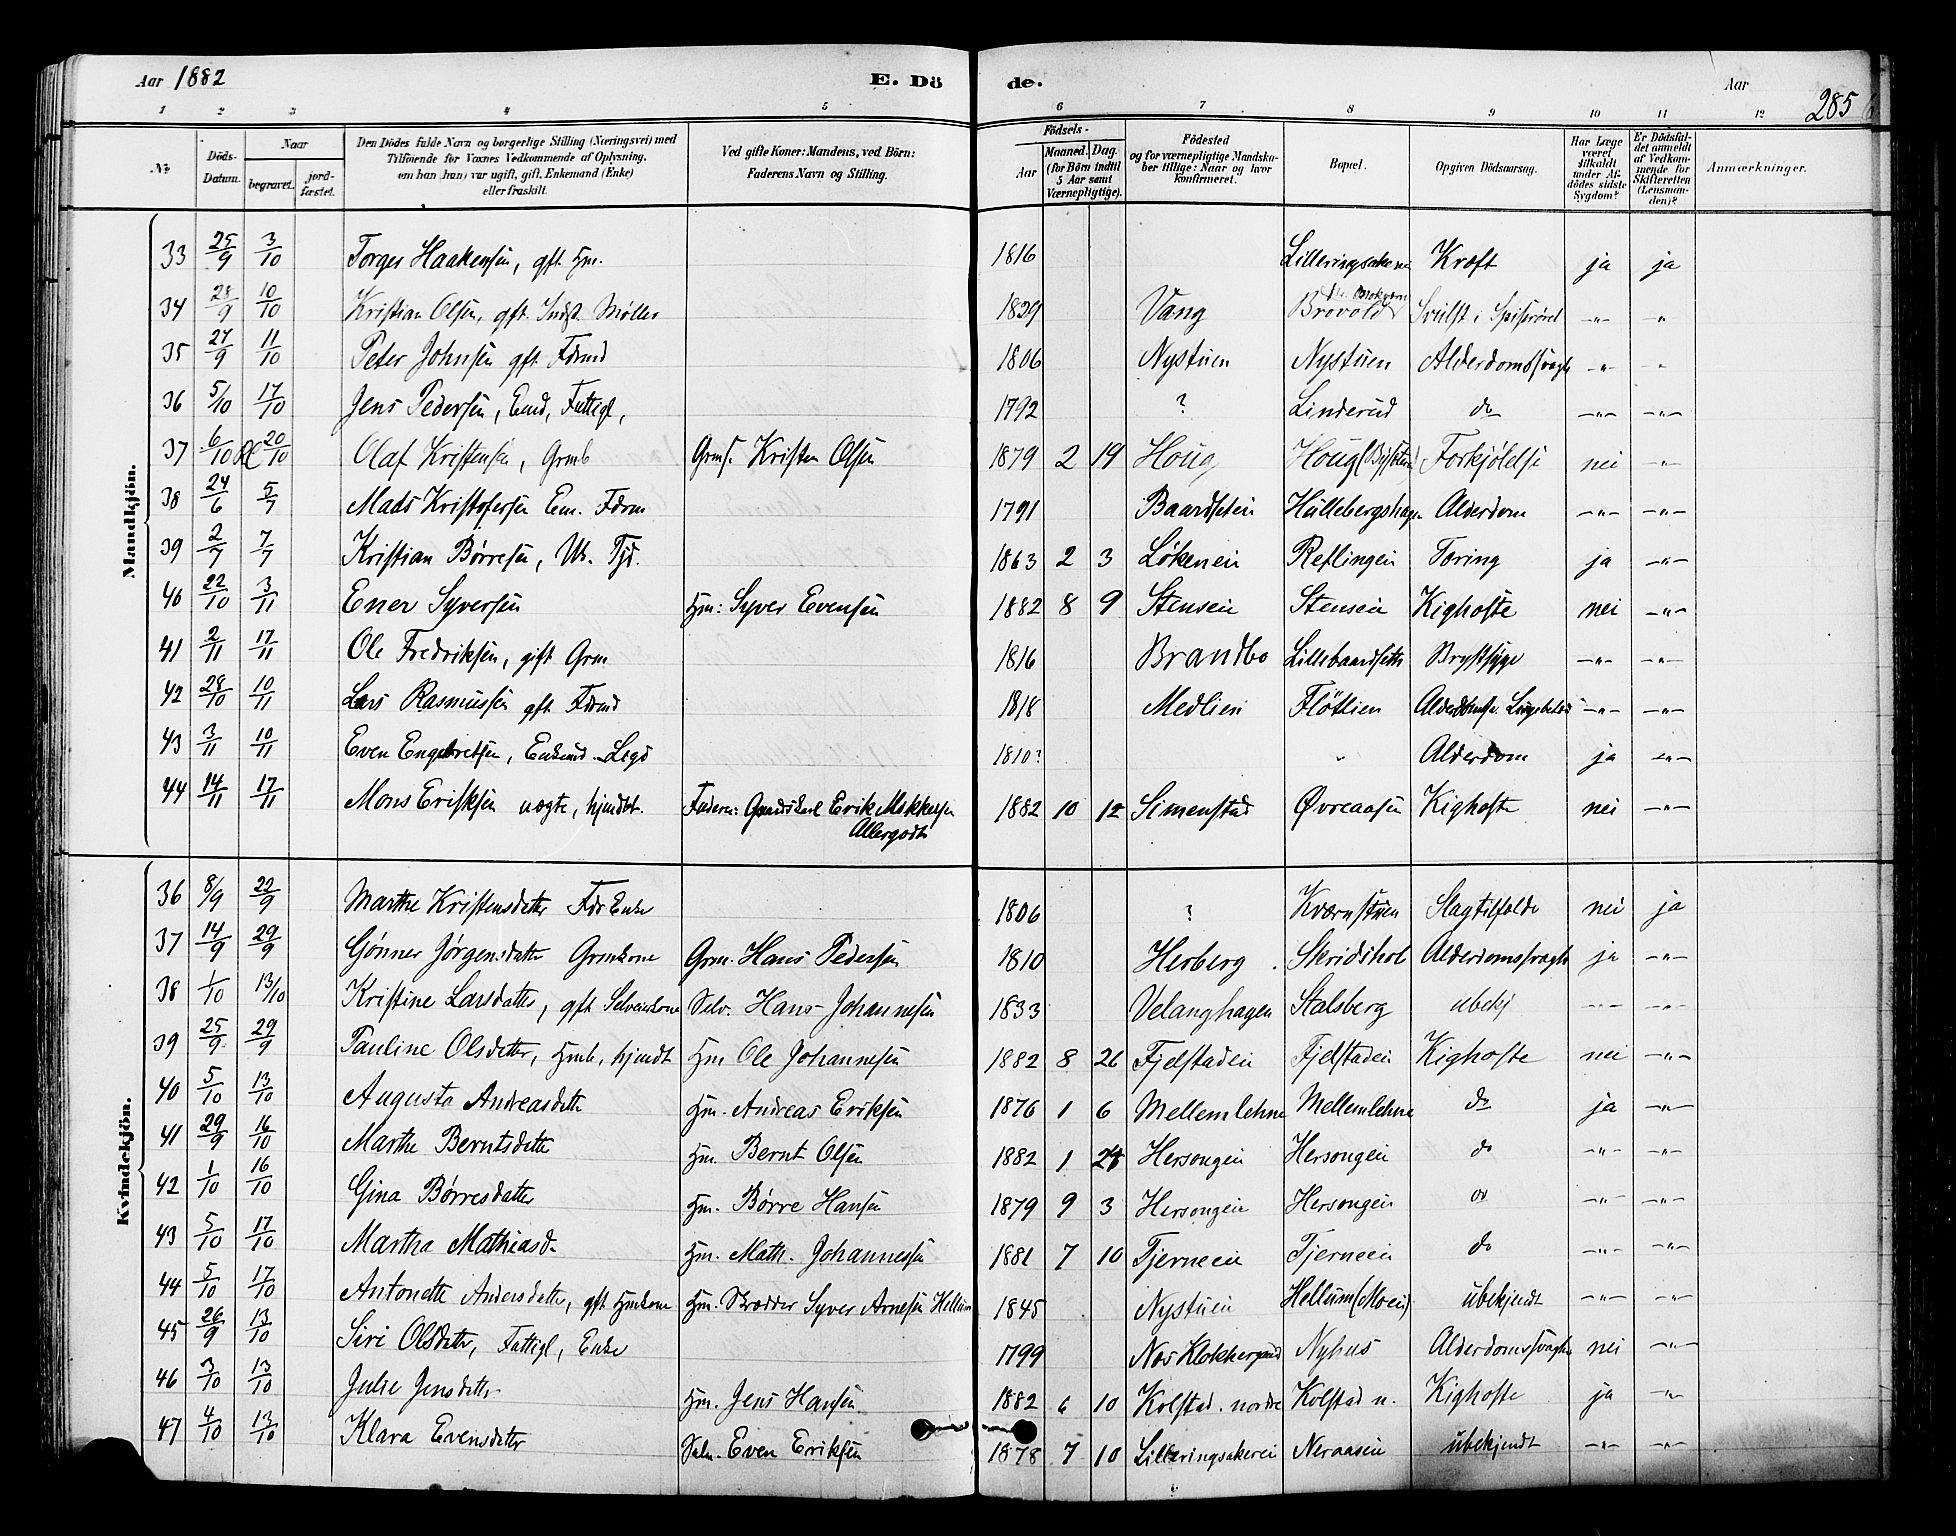 Aar 1882 E. Dö de. Aar 285
1 2 3 4 5 6 7 8 9 10 11 12
No. Döds-Datum. Naar begravet. jord-fæstet. Den Dödes fulde Navn og borgerlige Stilling (Næringsvei) med Tilföiende for Voxnes Vedkommende af Oplysning, om han (hun) var ugift, gift, Enkemand (Enke) eller fraskilt. Ved gifte Koner: Mandens, ved Börn: Faderens Navn og Stilling. Födsels- Aar Maaned. Dag. (for Börn indtil 5 Aar samt Værnepligtige). Födested og for værnepligtige Mandska-ber tillige: Naar og hvor konfirmeret. Bopæl. Opgiven Dödsaarsag. Har Læge været tilkaldt under Af-dödes sidste Sygdom? Er Dödsfal-det anmeldt af Vedkom-mende for Skifteretten (Lensman-den)? Anmærkninger.
Mandkjön.
33 25/9 3/10 Torger Haakensen, gft. Hm. 1816 Lilleringsakeren Kræft ja ja
34 28/9 10/10 Kristian Olsen, gft. Indst. Møller 1829 Vang Brovold Svulst i Spiserøret -"- "
35 27/9 11/10 Peter Johnsen gft. Fdrmd 1806 Nystuen Nystuen Alderdomssvagh -"- "
36 5/10 17/10 Jens Pedersen, Emd, Fattigl, 1792 ? Linderud do -"- -"-
37 6/10 20/10 Olaf Kristensen, Grmb Grms. Kristen Olsen 1879 2 19 Houg Houg Forkjølelse nei -"-
38 24/6 5/7 Mads Kristofersen Em. Fdrm 1791 Baardseien Hullebergshagen Alderdom -"- -"-
39 2/7 7/7 Kristian Børresen, Uk. Tjd. 1863 2 3 Løkeneie Reflingeie Tæring ja -"-
40 22/10 3/11 Ener Syversen Hm: Syver Evensen 1882 8 9 Stenseie Stenseie Kighoste nei -"-
41 2/11 17/11 Ole Fredriksen, gift Grm 1816 Brandbo Lillebaardseth Brystsyge -"- -"-
42 28/10 10/11 Lars Rasmussen gft. Fdrmd 1818 Medlien Fløtlien -"- -"-
43 3/11 10/11 Even Engebretsen, Enkemd. Lægd 1810? " Alderdom ja -"-
44 14/11 17/11 Mons Eriksen uægte, hjemdbt. Faderen: Erik Mikkelsen 1882 10 12 Simenstad Øvreaasen Kighoste nei -"-
Allergodt
Kvindekjön.
36 8/9 22/9 Marthe Kristensdatter Fdr Enke 1806 ? Kværnstuen Slagtilfælde nei ja
37 14/9 29/9 Gønner Jørgensdatter Grmkone Grm. Hans Pedersen 1810 Herberg Skridshol Alderdomssvagh ja -"-
38 1/10 13/10 Kristine Larsdatter, gft Selveierkone Selv. Hans Johannesen 1833 Velanghagen Stalsberg ubekj -"- -"-
39 25/9 29/9 Pauline Olsdatter, Hmb, hjemdt Hm Ole Johannesen 1882 8 26 Fjelstadeie Fjelstadeie Kighoste nei -"-
40 5/10 13/10 Augusta Andreasdatter Hm. Andreas Eriksen 1876 1 6 Mellemlehne Mellemlehne do ja -"-
41 29/9 16/10 Marthe Berntsdatter Hm. Bernt Olsen 1882 1 24 Hersongeie Hersongeie do -"- -"-
42 1/10 16/10 Gina Børresdatter Hm. Børre Hansen 1879 9 3 Hersongeie Hersongeie do -"- -"-
43 5/10 17/10 Martha Mathiasd. Hm. Math. Johannessen 1881 7 10 Tjerneeie Tjerneeie do -"- -"-
44 5/10 17/10 Antonette Andersdatter, gft Hmkone Hm. Skrædder Syver Arnesen Hellum 1845 Nystuen Hellum (Moen) ubekjendt -"- -"-
45 26/9 13/10 Siri Olsdatter, Fattigl, Enke 1799 Næs Klokkergaard Nyhus Alderdomssvagh nei -"-
46 3/10 13/10 Julie Jensdatter Hm. Jens Hansen 1882 6 10 Kolstad nordre Kolstad n. Kighoste ja -"-
47 4/10 13/10 Klara Evensdatter Selv. Even Eriksen 1878 7 10 Lilleringsakereie Neraasen ubekjendt -"- -"-